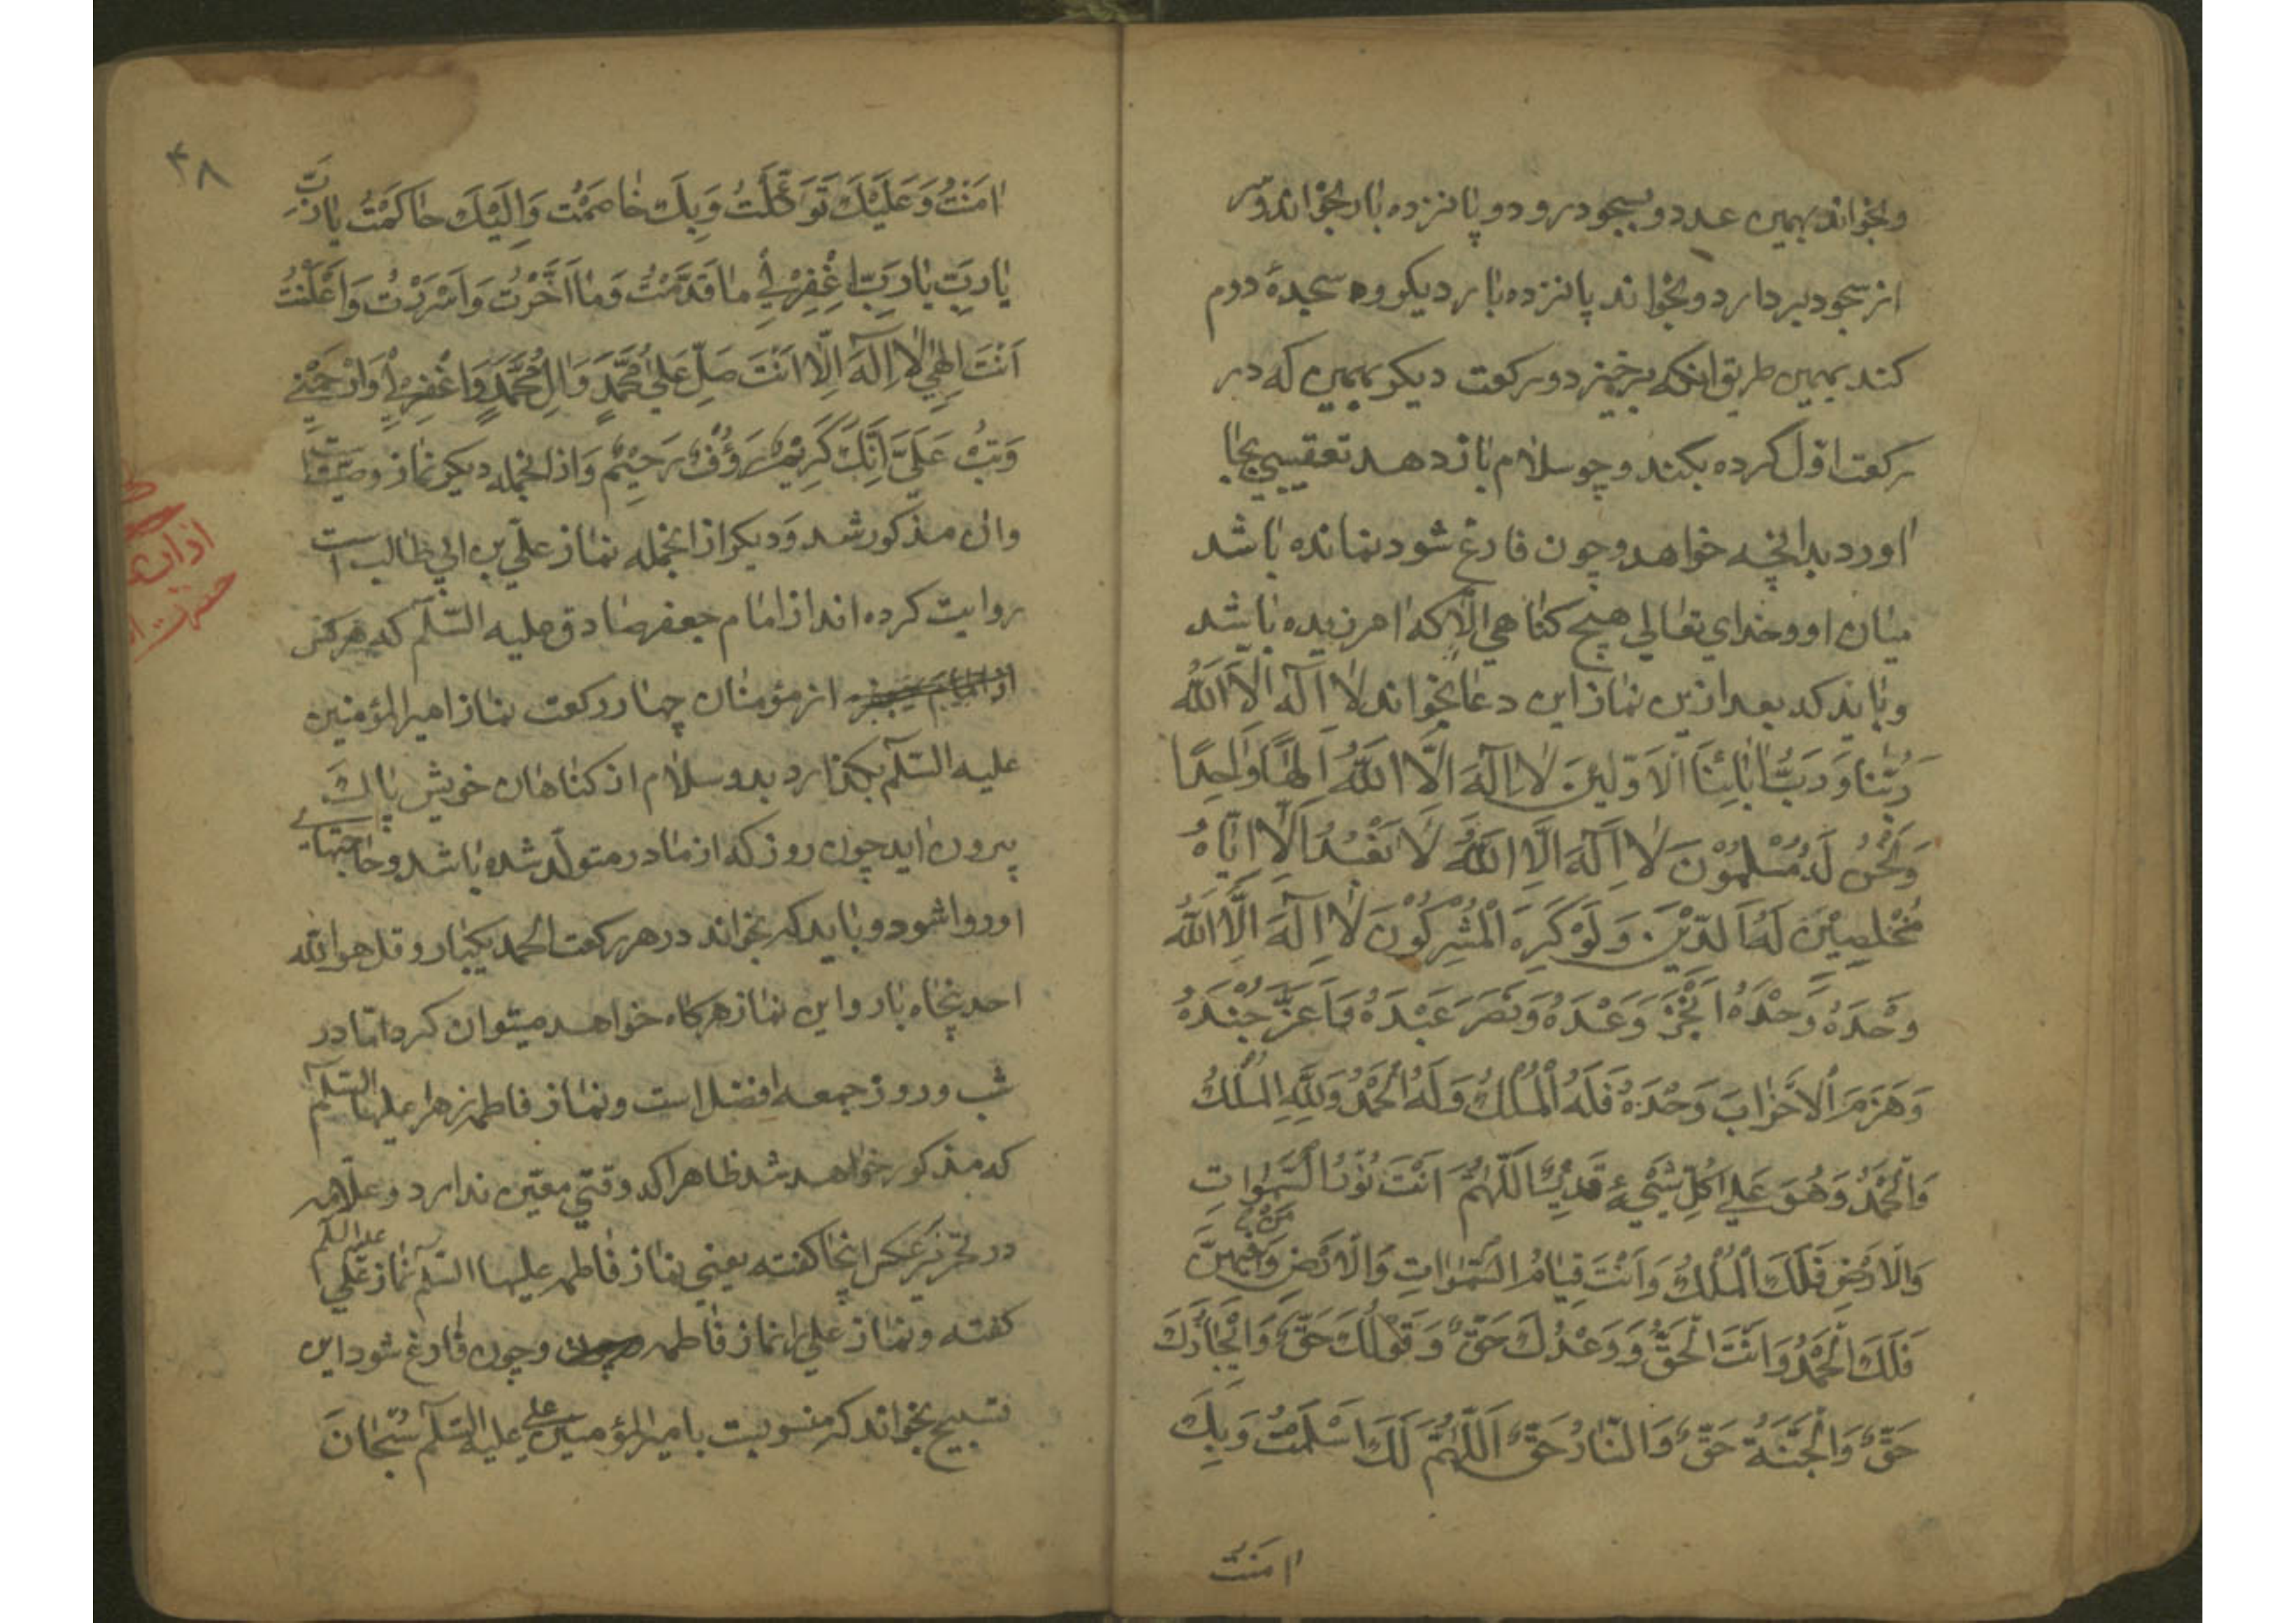 وبخواند بهمین عدد و بسجود رود و پانزده بار بخواند و سر
از سجود بردارد و بخواند پانزده بار دیکر و سجدهٔ دوم
کند بهمین طریق انکه برخیزد و رکعت دیکر بهمین که در
رکعت اوّل کرده بکند و چو سلام باز دهد تعقیبی بجا
اورد بدانچه خواهد و چون فارغ شود نمانده باشد
میان او و خدای تعالی هیچ کناهی الّا که امرزیده باشد
و باید که بعد ازین نماز این دعا بخواند لا اِلٰهَ اِلَّا اللّٰهُ
رَبُّنا وَرَبُّ اٰبائِنَا الْاَوَّلینَ لا اِلٰهَ اِلَّا اللّٰهُ اِلٰهًا وٰاحِدًا
وَنَحْنُ لَهُ مُسْلِمُوْنَ لا اِلٰهَ اِلَّا اللّٰهُ لا نَعْبُدُ اِلَّا اِیّاهُ
مُخْلِصِیْنَ لَهُ الدّیْنَ وَلَوْ کَرِهَ الْمُشْرِکُوْنَ لا اِلٰهَ اِلَّا اللّٰهُ
وَحْدَهُ وَحْدَهُ اَنْجَزَ وَعْدَهُ وَنَصَرَ عَبْدَهُ وَاَعَزَّ جُنْدَهُ
وَهَزَمَ الْاَحْزابَ وَحْدَهُ فَلَهُ الْمُلْكُ وَلَهُ الْحَمْدُ وَلِلّٰهِ الْمُلْكُ
وَالْحَمْدُ وَهُوَ عَلی کُلِّ شَیْءٍ قَدِیْرٌ اَللّٰهُمَّ اَنْتَ نُوْرُ السَّمٰوٰاتِ
وَالْاَرْضِ فَلَكَ الْمُلْكُ وَاَنْتَ قِیامُ السَّمٰوٰاتِ وَالْاَرْضِ وَمَنْ فیهِنَّ
فَلَكَ الْحَمْدُ وَاَنْتَ الْحَقُّ وَوَعْدُكَ حَقٌّ وَقَوْلُكَ حَقٌّ وَاِنْجازُكَ
حَقٌّ وَالْجَنَّةُ حَقٌّ وَالنّارُ حَقٌّ اَللّٰهُمَّ لَكَ اَسْلَمْتُ وَبِكَ
اٰمَنْتُ
۴۸
اٰمَنْتُ وَعَلَیْكَ تَوَکَّلْتُ وَبِكَ خاصَمْتُ وَاِلَیْكَ حاکَمْتُ یارَبِّ
یارَبِّ یارَبِّ اِغْفِرْ لی ما قَدَّمْتُ وَما اَخَّرْتُ وَاَسْرَرْتُ وَاَعْلَنْتُ
اَنْتَ اِلٰهی لا اِلٰهَ اِلّا اَنْتَ صَلِّ عَلی مُحَمَّدٍ وَاٰلِ مُحَمَّدٍ وَاغْفِرْ لی وَارْحَمْنی
وَتُبْ عَلَیَّ اِنَّكَ کَرِیْمٌ رَؤُفٌ رَحِیْمٌ وَاز انجمله دیکر نماز وصیّت است
وان مذکور شد وَدیکر از انجمله نماز علیّ بن ابی طالب است
روایت کرده اند از امام جعفر صادق علیه السّلٰم که هر کس
از مؤمنان چهار رکعت نماز امیر المؤمنین
علیه السّلٰم بکذارد بدو سلام از کناهان خویش پاك
بیرون اید چون روز که از مادر متولّد شده باشد و حاجتهای
او روا شود و باید که بخواند در هر رکعت الحمد یکبار و قل هو الله
احد پنجاه بار و این نماز هر کاه خواهد میتوان کرد امّا در
شب و روز جمعه افضل است و نماز فاطمه زهرا علیها السّلٰم
که مذکور خواهد شد ظاهرا که وقتی معیّن ندارد و علّامه
در تحریر عکس اینجا کفته یعنی نماز فاطمه علیها السّلٰم نماز علی علیه السلم
کفته و نماز علی را نماز فاطمه وچون فارغ شود این
تسبیح بخواند که منسوبست بامیر المؤمنین علی علیه السّلٰم سُبْحانَ